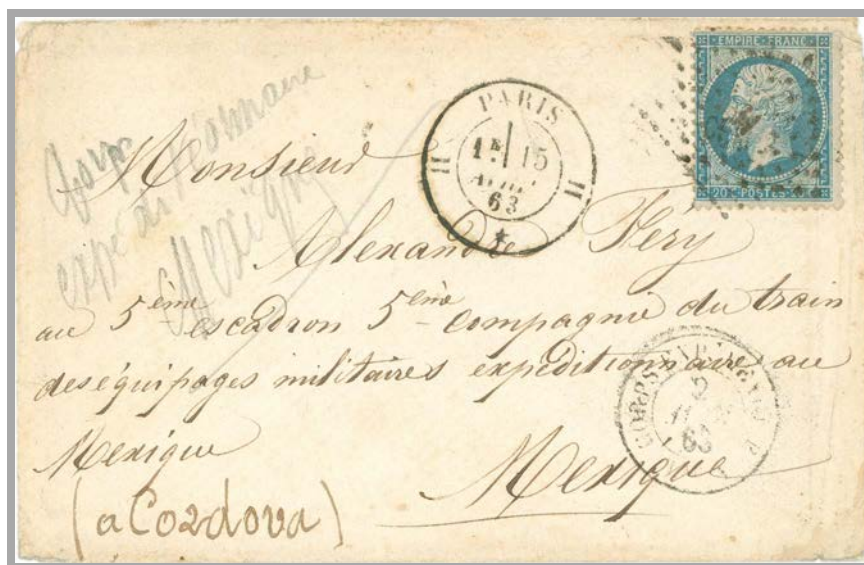 EMPIRE·FRANC·
20 C POSTES 20 C
PARIS
1E 15
AVRIL
63
11 11
Corps
expéditionnaire
Mexique
Monsieur
Alexandre Féry
au 5ème escadron 5ème compagnie du train
des équipages militaires expéditionnaire au
Mexique
Mexique
(a Cordova)
CORPS EXP. MEXIQUE
2
63